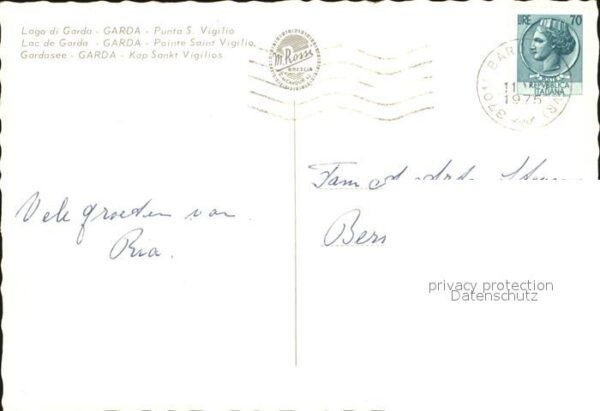 Lago di Garda - GARDA - Punta S. Vigilio
Lac de Garda - GARDA - Pointe Saint Vigilio
Gardasee - GARDA - Kap Sankt Vigilios
M. Rossi
BRESCIA
LIRE 70
REPUBBLICA
ITALIANA
BAR
11
1975
3701
Fam
Vele groeten van
Ria.
Bers
privacy protection
Datenschutz